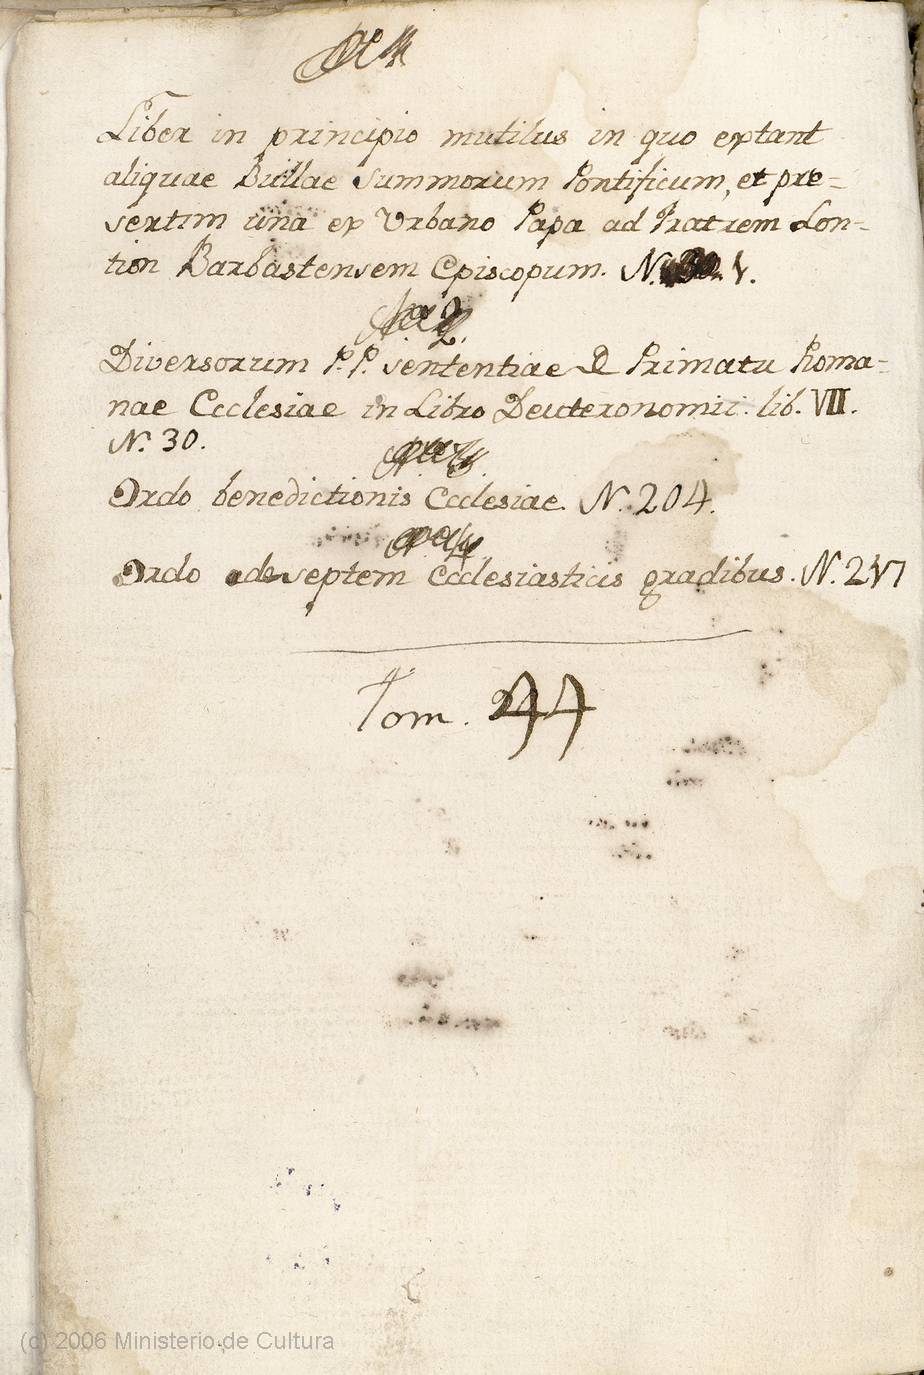 Liber in principio mutilus in quo extant
aliquae Bullae Summorum Pontificum, et pre=
sertim una ex Urbano Papa ad Fratrem Lon-
tion Barbastensem Episcopum. N. 1.
2.
Diversorum P.P. sententiae D Primatu Roma=
nae Ecclesiae in Libro Deuteronomii. lib. VII.
N. 30.
3
Ordo benedictionis Ecclesiae. N. 204.
4
Ordo de septem Ecclesiasticis gradibus. N. 217
Tom. 44
(c) 2006 Ministerio de Cultura